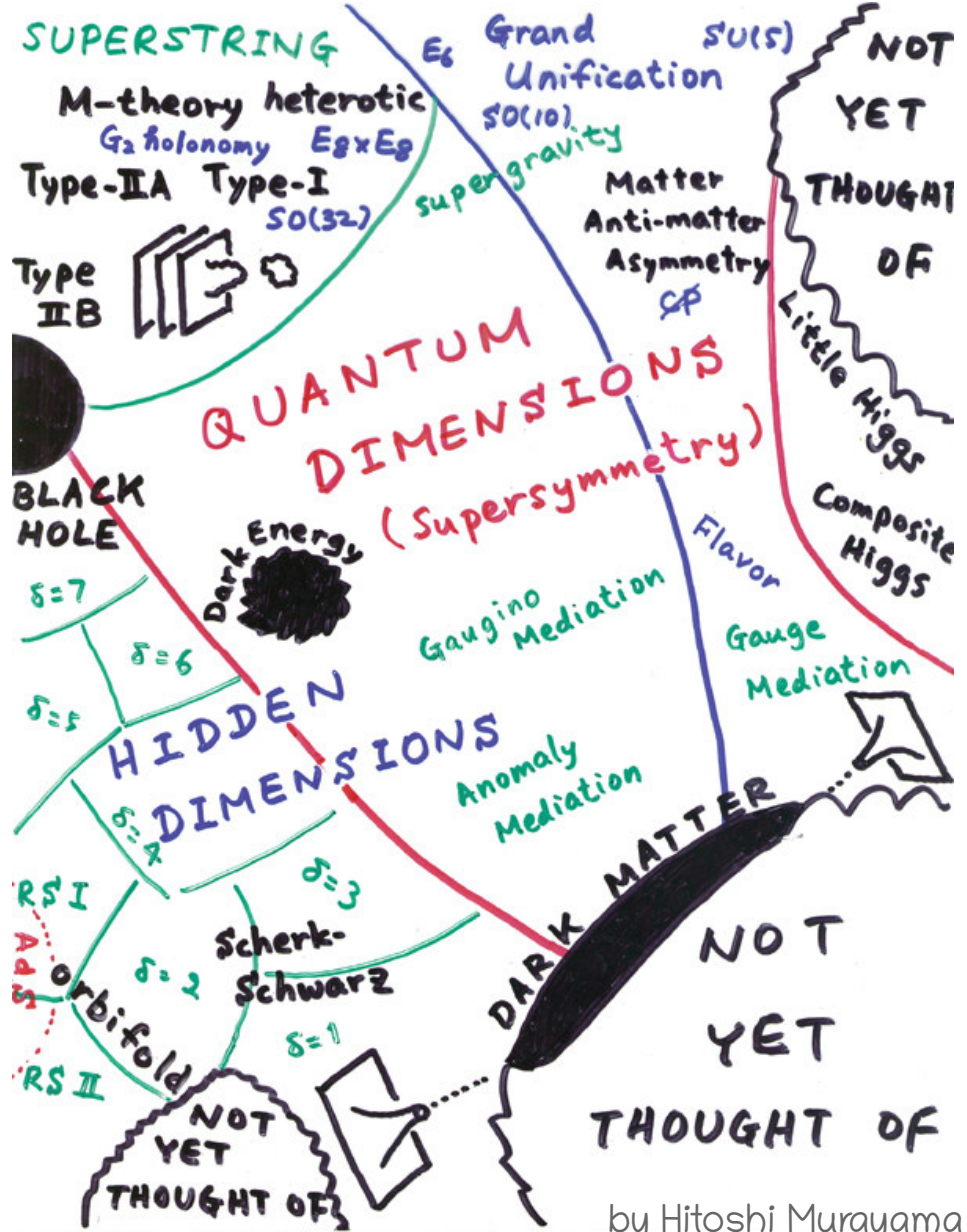 SUPERSTRING
M-theory heterotic
G₂ holonomy E₈×E₈
Type-IIA Type-I
SO(32)
Type
IIB
E₆
Grand
Unification
SO(10)
SU(5)
supergravity
Matter
Anti-matter
Asymmetry
CP
NOT
YET
THOUGHT
OF
Little Higgs
Composite
Higgs
QUANTUM
DIMENSIONS
(Supersymmetry)
BLACK
HOLE
Dark Energy
Flavor
Gaugino
Mediation
Gauge
Mediation
Anomaly
Mediation
δ=7
δ=6
δ=5
HIDDEN
DIMENSIONS
δ=4
δ=3
RS I
AdS
Orbifold
δ=2
Scherk-
Schwarz
δ=1
RS II
DARK MATTER
NOT
YET
THOUGHT OF
NOT
YET
THOUGHT OF
by Hitoshi Murayama